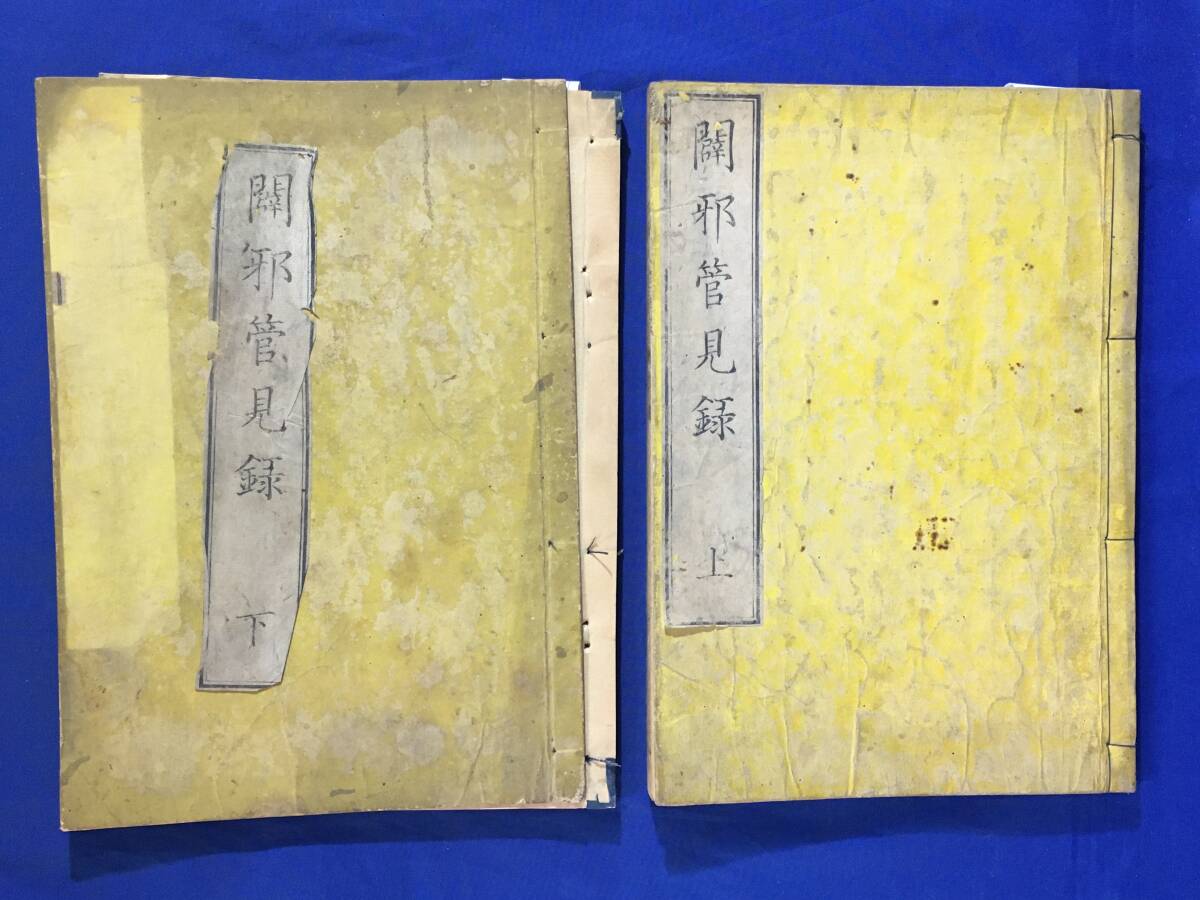 闢邪管見録 上
闢邪管見録 下